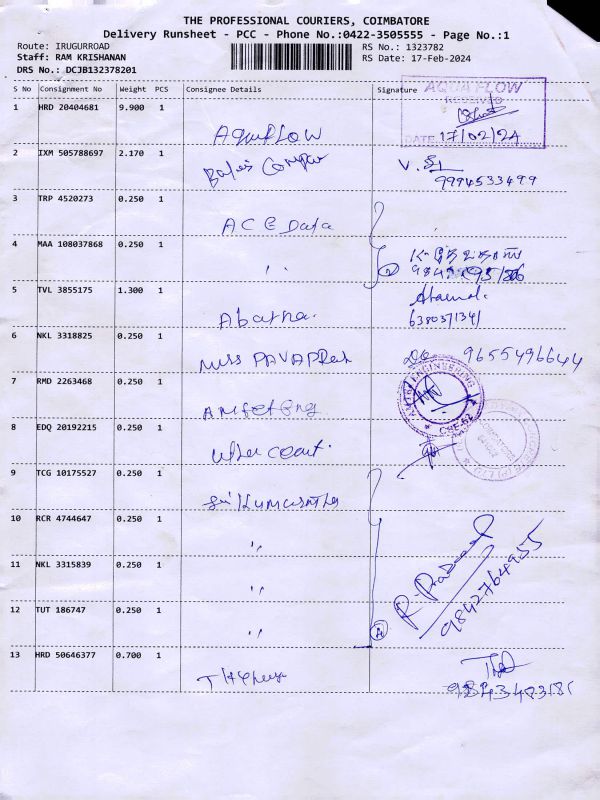 THE PROFESSIONAL COURIERS, COIMBATORE
Delivery Runsheet - PCC - Phone No.:0422-3505555 - Page No.:1
Route: IRUGURROAD
Staff: RAM KRISHANAN
DRS No.: DCJB132378201
RS No.: 1323782
RS Date: 17-Feb-2024
S No Consignment No Weight PCS Consignee Details Signature
AQUA FLOW
RECEIVED
DATE 17/02/24
1 HRD 20404681 9.900 1
Aquaflow
2 IXM 505788697 2.170 1
9994533499
3 TRP 4520273 0.250 1
ACE Data
4 MAA 108037868 0.250 1
"
5 TVL 3855175 1.300 1
Abarna.
6380371341
6 NKL 3318825 0.250 1
Miss
9655496644
7 RMD 2263468 0.250 1
ENGINEERING
CBE-62
8 EDQ 20192215 0.250 1
9 TCG 10175527 0.250 1
10 RCR 4744647 0.250 1
"
11 NKL 3315839 0.250 1
"
12 TUT 186747 0.250 1
"
4
R. Prasad
9842764955
13 HRD 50646377 0.700 1